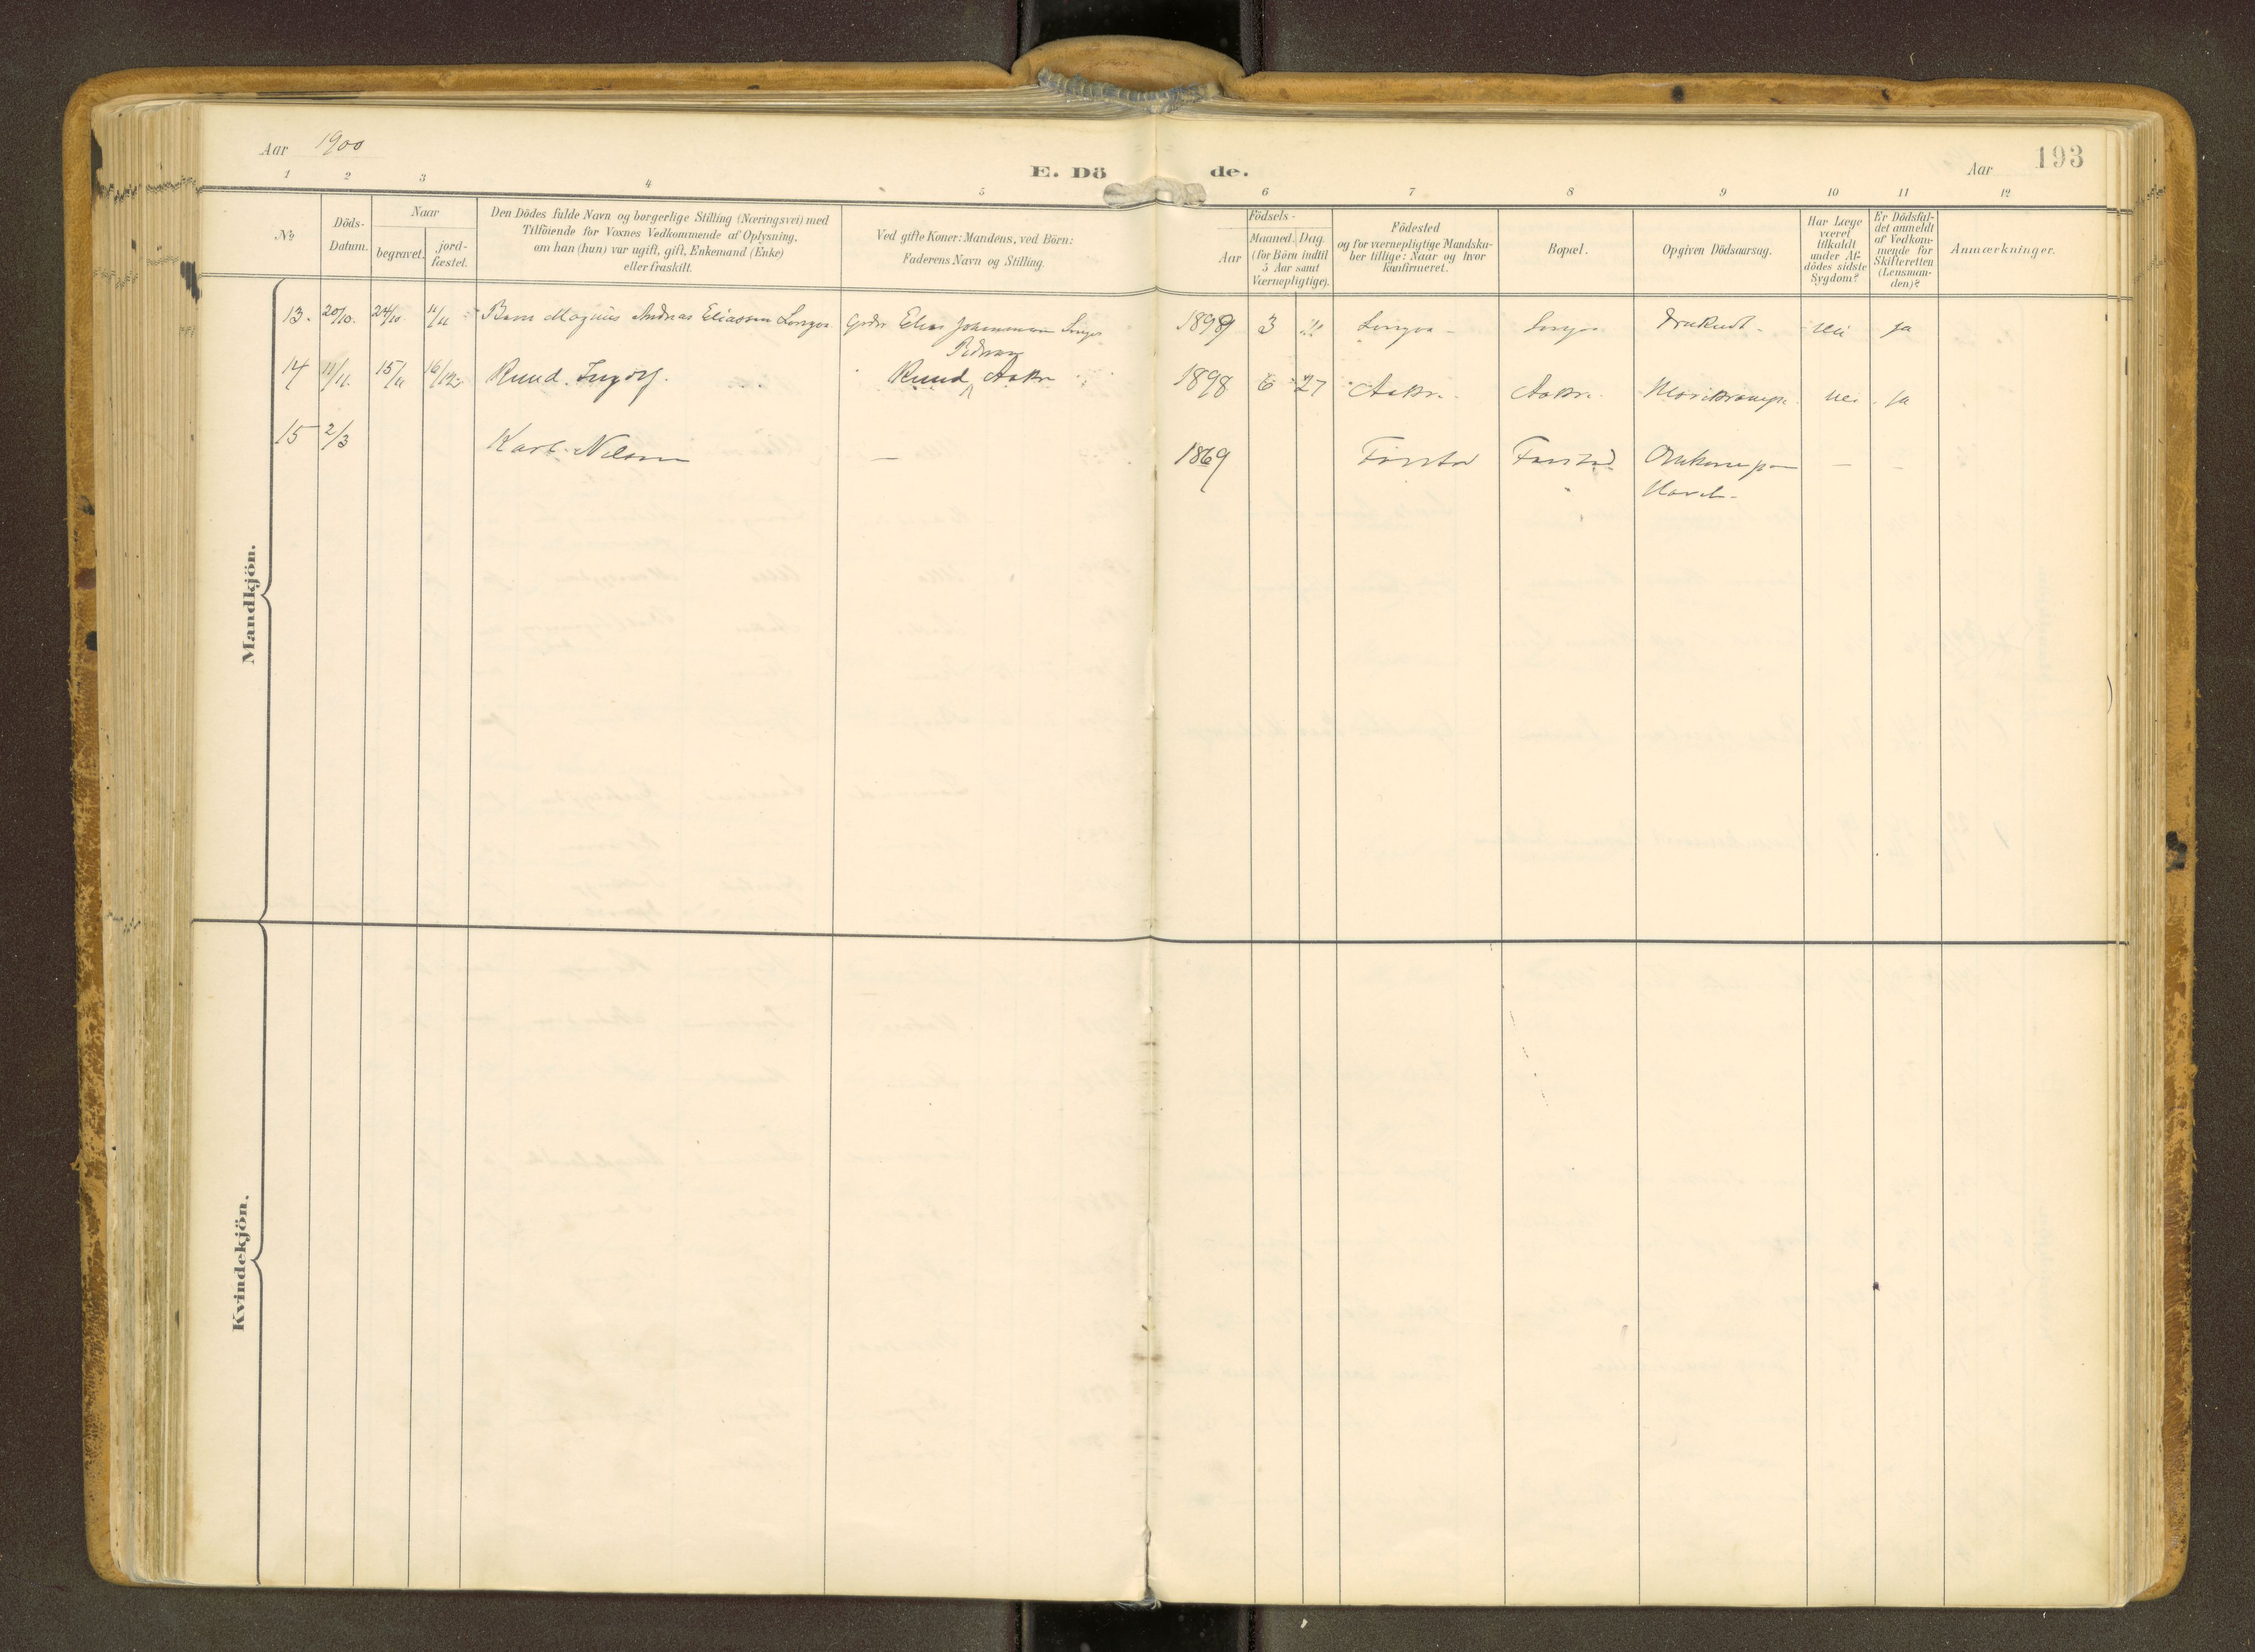 Aar 1900
E. Döde.
Aar 193
1 2 3 4 5 6 7 8 9 10 11 12
№
Döds-
Datum.
Naar
begravet.
jord-
fæstet.
Den Dödes fulde Navn og borgerlige Stilling (Næringsvei) med
Tilföiende for Voxnes Vedkommende af Oplysning,
om han (hun) var ugift, gift, Enkemand (Enke)
eller fraskilt.
Ved gifte Koner: Mandens, ved Börn:
Faderens Navn og Stilling.
Födsels-
Aar
Maaned.
Dag.
(for Börn indtil
5 Aar samt
Værnepligtige).
Födested
og for værnepligtige Mandsku-
ber tillige: Naar og hvor
konfirmeret.
Bopæl.
Opgiven Dödsaarsag.
Har Læge
været
tilkaldt
under Af-
dödes sidste
Sygdom?
Er Dödsfal-
det anmeldt
af Vedkom-
mende for
Skifteretten
(Lensman-
den)?
Anmærkninger.
Mandkjön.
13. 20/10. 24/10 11/11 Barn Magnus Andreas Eliassen Longva Elias Johannesen 1899 3 Longva nei ja
14 11/11. 15/11 16/12 Knud Ingolf. Knud Aakre 1898 6 27 Aakre. Aakre. nei ja
15 2/3 Karl Nilsen — 1869 Farstad Farstad Omkommen paa — —
Havet.
Kvindekjön.